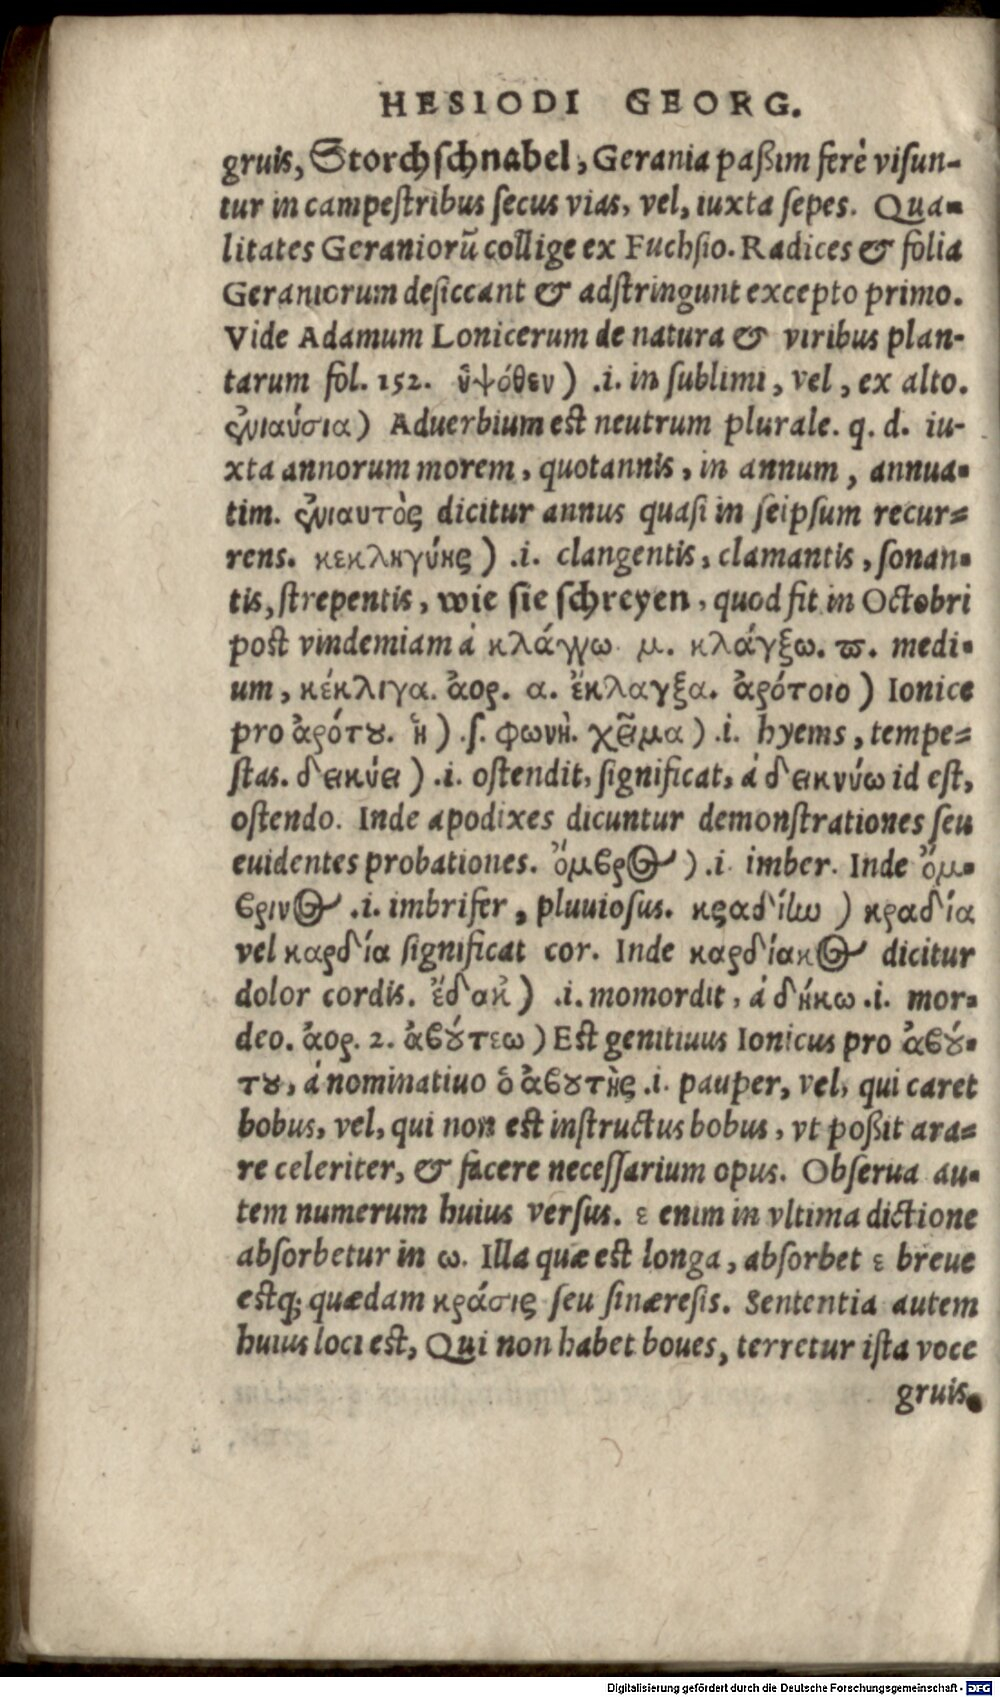 HESIODI GEORG.
gruis, Storchschnabel, Gerania paßim ferè visun-
tur in campestribus secus vias, vel, iuxta sepes. Qua-
litates Geraniorũ collige ex Fuchsio. Radices & folia
Geraniorum desiccant & adstringunt excepto primo.
Vide Adamum Lonicerum de natura & viribus plan-
tarum fol. 152. ὑψόθεν) .i. in sublimi, vel, ex alto.
ἐνιαύσια) Aduerbium est neutrum plurale. q. d. iu-
xta annorum morem, quotannis, in annum, annua-
tim. ἐνιαυτὸς dicitur annus quasi in seipsum recur-
rens. κεκληγύης) .i. clangentis, clamantis, sonan-
tis, strepentis, wie sie schreyen, quod fit in Octobri
post vindemiam á κλάγγω μ. κλάγξω. ϖ. medi-
um, κέκλιγα. ἀορ. α. ἔκλαγξα. ἀρότοιο) Ionice
pro ἀρότου. ἥ) .s. φωνὴ. χεῖμα) .i. hyems, tempe-
stas. δεικύει) .i. ostendit, significat, á δεικνύω id est,
ostendo. Inde apodixes dicuntur demonstrationes seu
euidentes probationes. ὄμβρος) .i. imber. Inde ὄμ-
βρινος .i. imbrifer, pluuiosus. κραδίην) κραδία
vel καρδία significat cor. Inde καρδίακος dicitur
dolor cordis. ἔδακ) .i. momordit, á δήκω .i. mor-
deo. ἀορ. 2. ἀβούτεω) Est genitiuus Ionicus pro ἀβού-
του, á nominatiuo ὁ ἀβουτὴς .i. pauper, vel, qui caret
bobus, vel, qui non est instructus bobus, vt poßit ara-
re celeriter, & facere necessarium opus. Obserua au-
tem numerum huius versus. ε enim in vltima dictione
absorbetur in ω. Illa quæ est longa, absorbet ε breue
estq; quædam κράσις seu sinæresis. Sententia autem
huius loci est, Qui non habet boues, terretur ista voce
gruis.
Digitalisierung gefördert durch die Deutsche Forschungsgemeinschaft - DFG